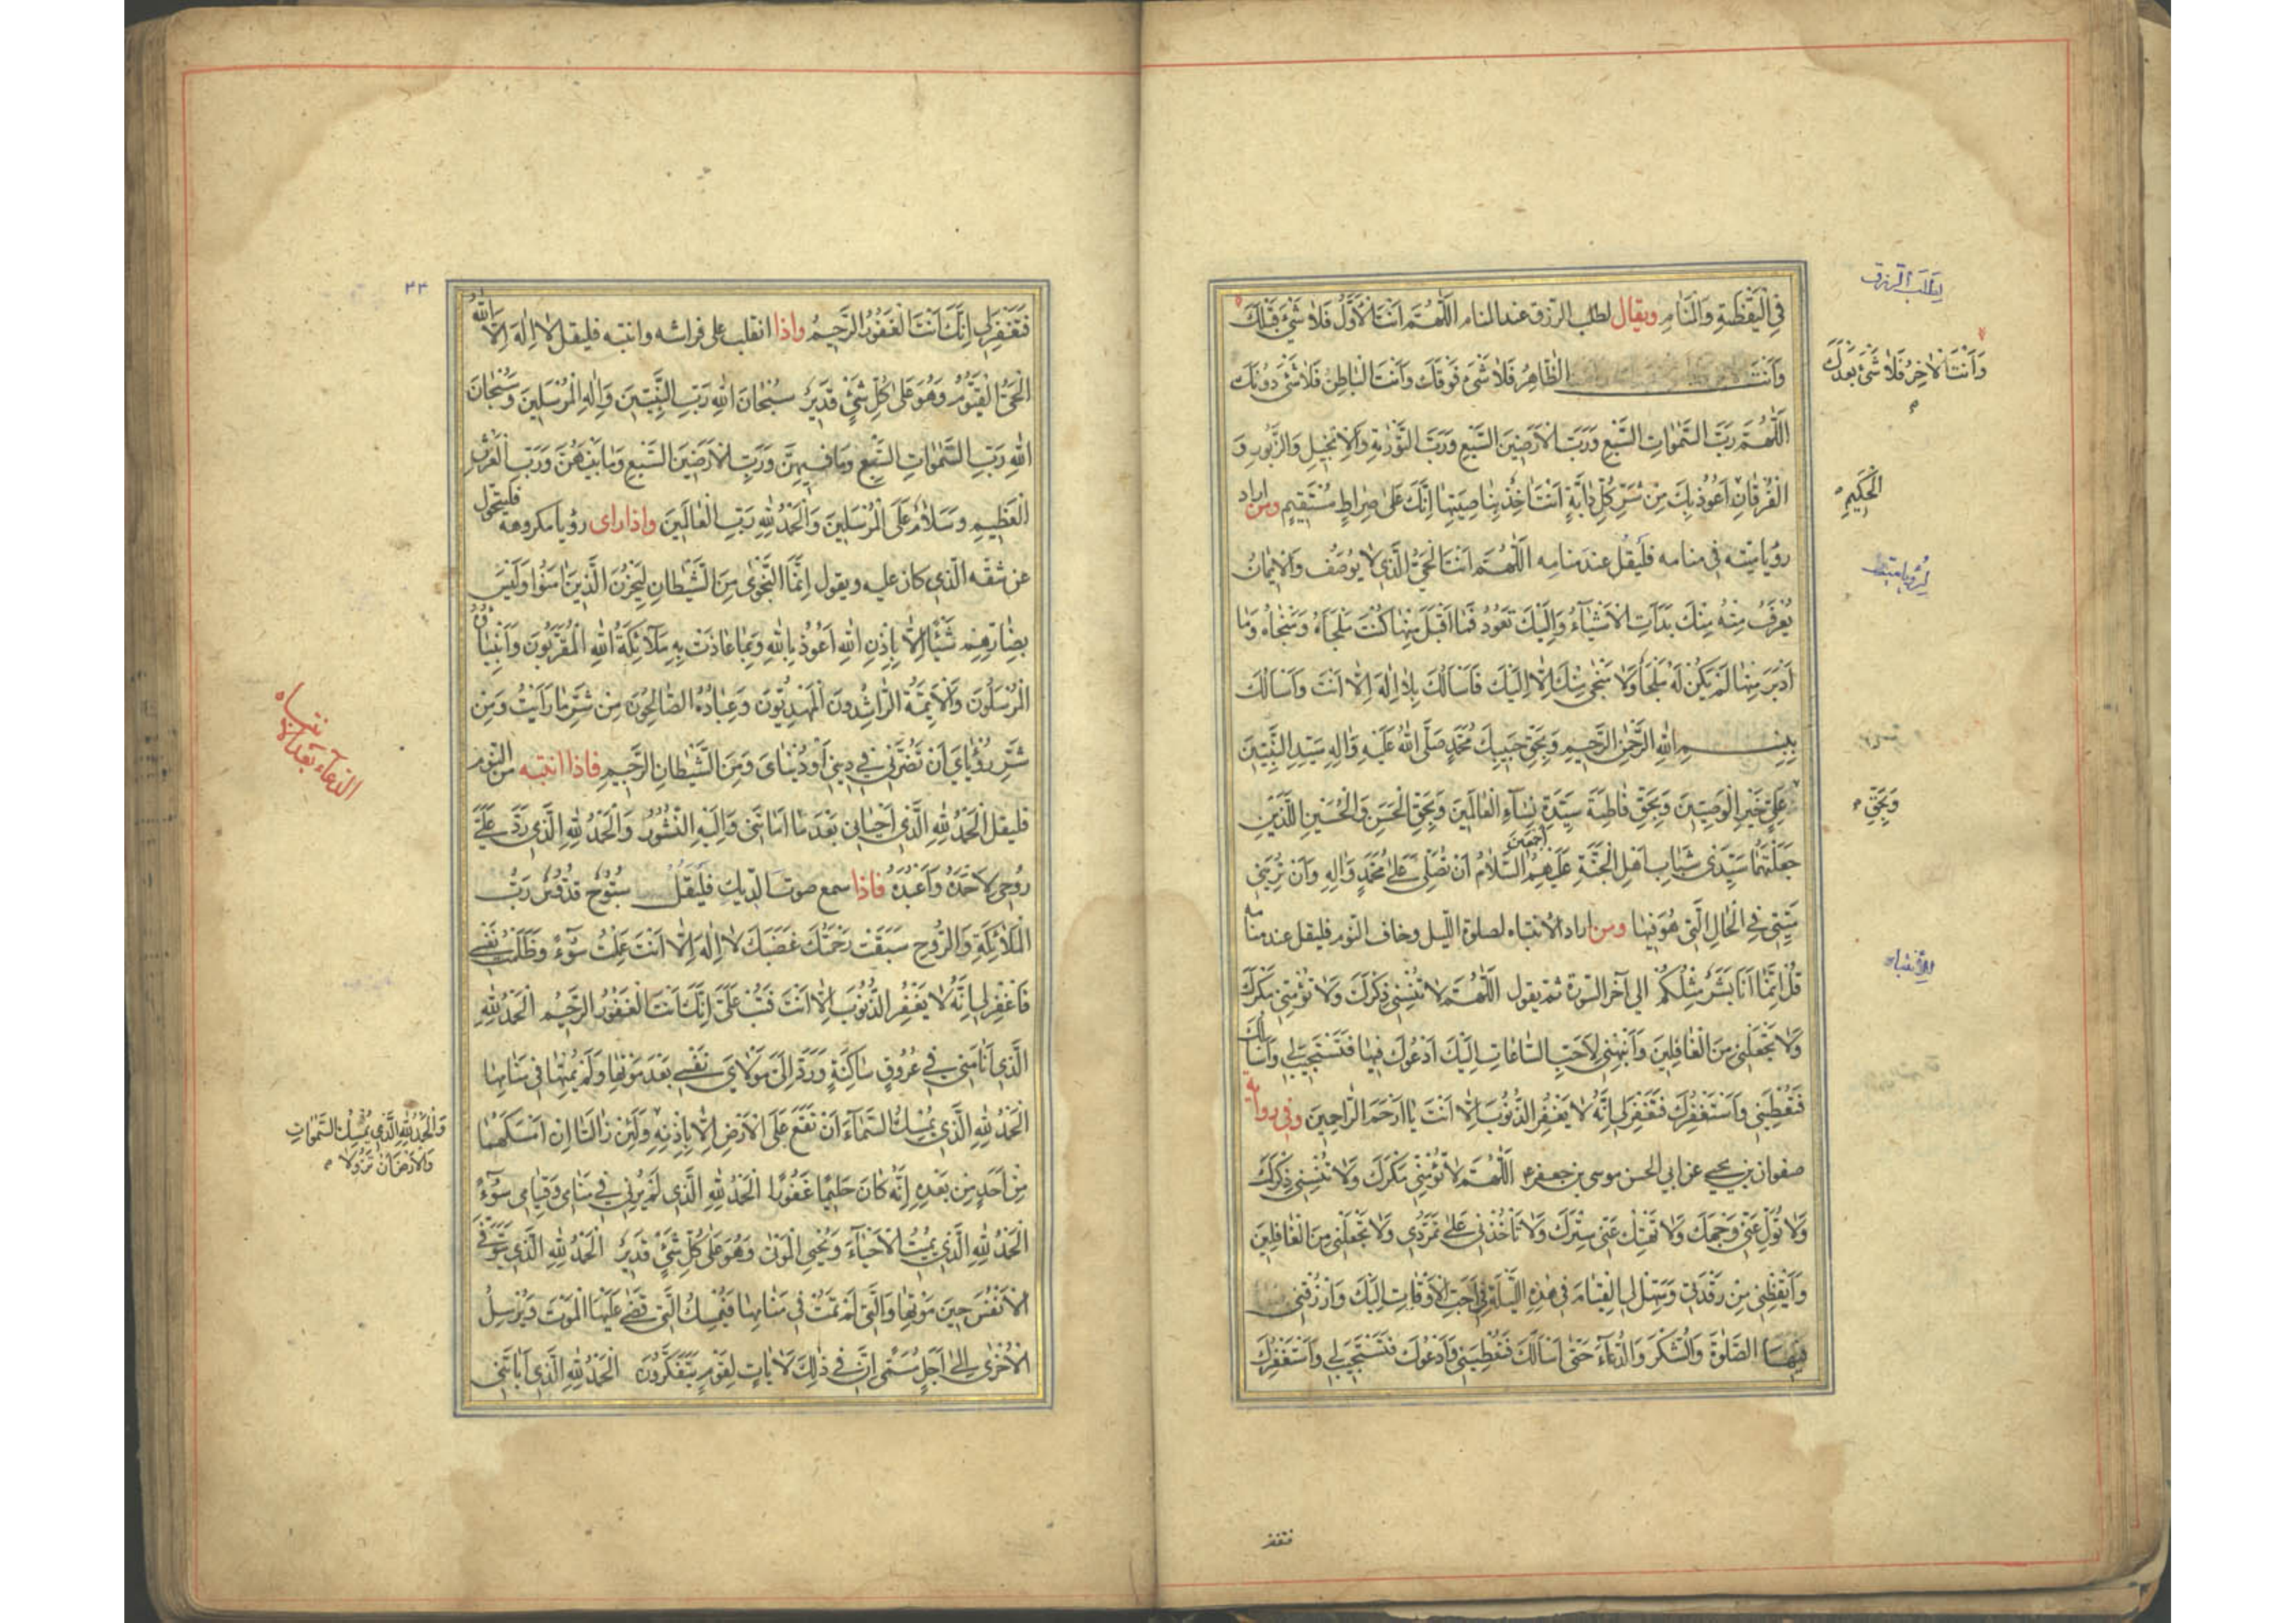 فِي الْيَقْظَةِ وَالْمَنَامِ ويقال لطلب الرزق عند المنام اَللّٰهُمَّ اَنْتَ الْاَوَّلُ فَلَا شَيْءَ قَبْلَكَ
وَاَنْتَ الظَّاهِرُ فَلَا شَيْءَ فَوْقَكَ وَاَنْتَ الْبَاطِنُ فَلَا شَيْءَ دُونَكَ
اَللّٰهُمَّ رَبَّ السَّمٰوَاتِ السَّبْعِ وَرَبَّ الْاَرَضِينَ السَّبْعِ وَرَبَّ التَّوْرٰيةِ وَالْاِنْجِيلِ وَالزَّبُورِ وَ
الْفُرْقَانِ اَعُوذُ بِكَ مِنْ شَرِّ كُلِّ دَابَّةٍ اَنْتَ اٰخِذٌ بِنَاصِيَتِهَا اِنَّكَ عَلٰى صِرَاطٍ مُسْتَقِيمٍ ومن اراد
رؤيا ميّته في منامه فَليقُل عند منامه اَللّٰهُمَّ اَنْتَ الْحَيُّ الَّذِي لَا يُوصَفُ وَالْاِيمَانُ
يُعْرَفُ مِنْهُ مِنْكَ بَدَأَتِ الْاَشْيَاءُ وَاِلَيْكَ تَعُودُ فَمَا اَقْبَلَ مِنْهَا كُنْتَ مَلْجَاَهُ وَمَنْجَاهُ وَمَا
اَدْبَرَ مِنْهَا لَمْ يَكُنْ لَهُ مَلْجَأٌ وَلَا مَنْجٰى مِنْكَ اِلَّا اِلَيْكَ فَاَسْاَلُكَ بِلَا اِلٰهَ اِلَّا اَنْتَ وَاَسْاَلُكَ
بِبِسْمِ اللهِ الرَّحْمٰنِ الرَّحِيمِ وَبِحَقِّ حَبِيبِكَ مُحَمَّدٍ صَلَّى اللهُ عَلَيْهِ وَاٰلِهِ سَيِّدِ النَّبِيِّينَ
عَلِيٍّ خَيْرِ الْوَصِيِّينَ وَبِحَقِّ فَاطِمَةَ سَيِّدَةِ نِسَاءِ الْعَالَمِينَ وَبِحَقِّ الْحَسَنِ وَالْحُسَيْنِ اللَّذَيْنِ
جَعَلْتَهُمَا سَيِّدَيْ شَبَابِ اَهْلِ الْجَنَّةِ عَلَيْهِمُ اَجْمَعِينَ السَّلَامُ اَنْ تُصَلِّيَ عَلٰى مُحَمَّدٍ وَاٰلِهِ وَاَنْ تُرِيَنِي
مَيِّتِي فِي الْحَالِ الَّتِي هُوَ فِيهَا ومن اراد الانتباه لصلوة اللّيل وخاف النّوم فليقل عند منامه
قُلْ اِنَّمَا اَنَا بَشَرٌ مِثْلُكُمْ الى آخر السّورة ثمّ يقول اَللّٰهُمَّ لَا تُنْسِنِي ذِكْرَكَ وَلَا تُؤْمِنِّي مَكْرَكَ
وَلَا تَجْعَلْنِي مِنَ الْغَافِلِينَ وَاَنْبِهْنِي لِاَحَبِّ السَّاعَاتِ اِلَيْكَ اَدْعُوكَ فِيهَا فَتَسْتَجِيبَ لِي وَاَسْاَلُكَ
فَتُعْطِيَنِي وَاَسْتَغْفِرُكَ فَتَغْفِرَ لِي اِنَّهُ لَا يَغْفِرُ الذُّنُوبَ اِلَّا اَنْتَ يَا اَرْحَمَ الرَّاحِمِينَ وفي رواية
صفوان بن يحيى عن ابي الحسن موسى بن جعفر اَللّٰهُمَّ لَا تُؤْمِنِّي مَكْرَكَ وَلَا تُنْسِنِي ذِكْرَكَ
وَلَا تُوَلِّ عَنِّي وَجْهَكَ وَلَا تَهْتِكْ عَنِّي سِتْرَكَ وَلَا تَأْخُذْنِي عَلٰى تَمَرُّدِي وَلَا تَجْعَلْنِي مِنَ الْغَافِلِينَ
وَاَيْقِظْنِي مِنْ رَقْدَتِي وَسَهِّلْ لِيَ الْقِيَامَ فِي هٰذِهِ اللَّيْلَةِ فِي اَحَبِّ الْاَوْقَاتِ اِلَيْكَ وَارْزُقْنِي
فِيهَا الصَّلٰوةَ وَالشُّكْرَ وَالدُّعَاءَ حَتّٰى اَسْاَلَكَ فَتُعْطِيَنِي وَاَدْعُوَكَ فَتَسْتَجِيبَ لِي وَاَسْتَغْفِرَكَ
لِطَلَبِ الرِّزق
وَاَنْتَ الْاٰخِرُ فَلَا شَيْءَ بَعْدَكَ
الْحَكِيمِ
لرؤيا ميّت
وَبِحَقِّ
للانتباه
فتغفر
٢٣
فَتَغْفِرَ لِي اِنَّكَ اَنْتَ الْغَفُورُ الرَّحِيمُ واذا انقلب على فراشه وانتبه فليقل لَا اِلٰهَ اِلَّا اللهُ
الْحَيُّ الْقَيُّومُ وَهُوَ عَلٰى كُلِّ شَيْءٍ قَدِيرٌ سُبْحَانَ اللهِ رَبِّ النَّبِيِّينَ وَاِلٰهِ الْمُرْسَلِينَ وَسُبْحَانَ
اللهِ رَبِّ السَّمٰوَاتِ السَّبْعِ وَمَا فِيهِنَّ وَرَبِّ الْاَرَضِينَ السَّبْعِ وَمَا بَيْنَهُنَّ وَرَبِّ الْعَرْشِ
الْعَظِيمِ وَسَلَامٌ عَلَى الْمُرْسَلِينَ وَالْحَمْدُ لِلّٰهِ رَبِّ الْعَالَمِينَ واذا راى رؤيا مكروهة فليتحوّل
عن شقّه الّذي كان عليه ويقول اِنَّمَا النَّجْوٰى مِنَ الشَّيْطَانِ لِيَحْزُنَ الَّذِينَ اٰمَنُوا وَلَيْسَ
بِضَارِّهِمْ شَيْئًا اِلَّا بِاِذْنِ اللهِ اَعُوذُ بِاللهِ وَبِمَا عَاذَتْ بِهِ مَلَائِكَةُ اللهِ الْمُقَرَّبُونَ وَاَنْبِيَاؤُهُ
الْمُرْسَلُونَ وَالْاَئِمَّةُ الرَّاشِدُونَ الْمَهْدِيُّونَ وَعِبَادُهُ الصَّالِحُونَ مِنْ شَرِّ مَا رَاَيْتُ وَمِنْ
شَرِّ رُؤْيَايَ اَنْ تَضُرَّنِي فِي دِينِي اَوْ دُنْيَايَ وَمِنَ الشَّيْطَانِ الرَّجِيمِ فاذا انتبه من النّوم
فليقل اَلْحَمْدُ لِلّٰهِ الَّذِي اَحْيَانِي بَعْدَ مَا اَمَاتَنِي وَاِلَيْهِ النُّشُورُ وَالْحَمْدُ لِلّٰهِ الَّذِي رَدَّ عَلَيَّ
رُوحِي لِاَحْمَدَهُ وَاَعْبُدَهُ فاذا سمع صوت الدّيك فَليَقُل سُبُّوحٌ قُدُّوسٌ رَبُّ
الْمَلَائِكَةِ وَالرُّوحِ سَبَقَتْ رَحْمَتُكَ غَضَبَكَ لَا اِلٰهَ اِلَّا اَنْتَ عَمِلْتُ سُوْءً وَظَلَمْتُ نَفْسِي
فَاغْفِرْ لِي اِنَّهُ لَا يَغْفِرُ الذُّنُوبَ اِلَّا اَنْتَ فَتُبْ عَلَيَّ اِنَّكَ اَنْتَ الْغَفُورُ الرَّحِيمُ اَلْحَمْدُ لِلّٰهِ
الَّذِي اَنَامَنِي فِي عُرُوقٍ سَاكِنَةٍ وَرَدَّ اِلَيَّ مَوْلَايَ نَفْسِي بَعْدَ مَوْتِهَا وَلَمْ يُمِتْهَا فِي مَنَامِهَا
اَلْحَمْدُ لِلّٰهِ الَّذِي يُمْسِكُ السَّمَاءَ اَنْ تَقَعَ عَلَى الْاَرْضِ اِلَّا بِاِذْنِهِ وَلَئِنْ زَالَتَا اِنْ اَمْسَكَهُمَا
مِنْ اَحَدٍ مِنْ بَعْدِهِ اِنَّهُ كَانَ حَلِيمًا غَفُورًا اَلْحَمْدُ لِلّٰهِ الَّذِي لَمْ يُرِنِي فِي مَنَامِي وَقِيَامِي سُوْءً
اَلْحَمْدُ لِلّٰهِ الَّذِي يُمِيتُ الْاَحْيَاءَ وَيُحْيِي الْمَوْتٰى وَهُوَ عَلٰى كُلِّ شَيْءٍ قَدِيرٌ اَلْحَمْدُ لِلّٰهِ الَّذِي يَتَوَفَّى
الْاَنْفُسَ حِينَ مَوْتِهَا وَالَّتِي لَمْ تَمُتْ فِي مَنَامِهَا فَيُمْسِكُ الَّتِي قَضٰى عَلَيْهَا الْمَوْتَ وَيُرْسِلُ
الْاُخْرٰى اِلٰى اَجَلٍ مُسَمًّى اِنَّ فِي ذٰلِكَ لَاٰيَاتٍ لِقَوْمٍ يَتَفَكَّرُونَ اَلْحَمْدُ لِلّٰهِ الَّذِي اَبَاتَنِي
الدّعاء بعد الانتباه
وَالْحَمْدُ لِلّٰهِ الَّذِي يُمْسِكُ السَّمٰوَاتِ
وَالْاَرْضَ اَنْ تَزُولَا